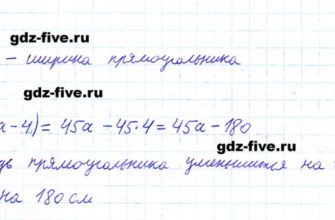 gdz-five.ru
– ширина прямоугольника
gdz-five.ru
а-4)= 45а -45·4=45а-180
gdz-five.ru
дь прямоугольника уменьшится на
на 180 см
gdz-five.ru